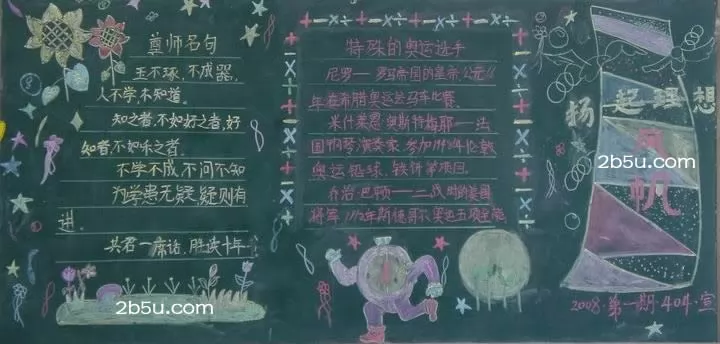 尊师名句
玉不琢,不成器,
人不学,不知道。
知之者,不如好之者,好
知者,不如乐之者。
不学不成,不问不知
为学患无疑,疑则有
进。
共君一席话,胜读十年
特殊的奥运选手
尼罗——罗马帝国的皇帝,公元
年在希腊奥运会马车比赛.
米什莱恩·奥斯特梅耶——法
国钢琴演奏家,参加1948年伦敦
奥运铅球、铁饼等项目。
乔治·巴顿——二战时的美国
将军,1912年斯德哥尔摩
扬起理想
风帆
2008·第一期·404·宣
2b5u.com
2b5u.com
2b5u.com